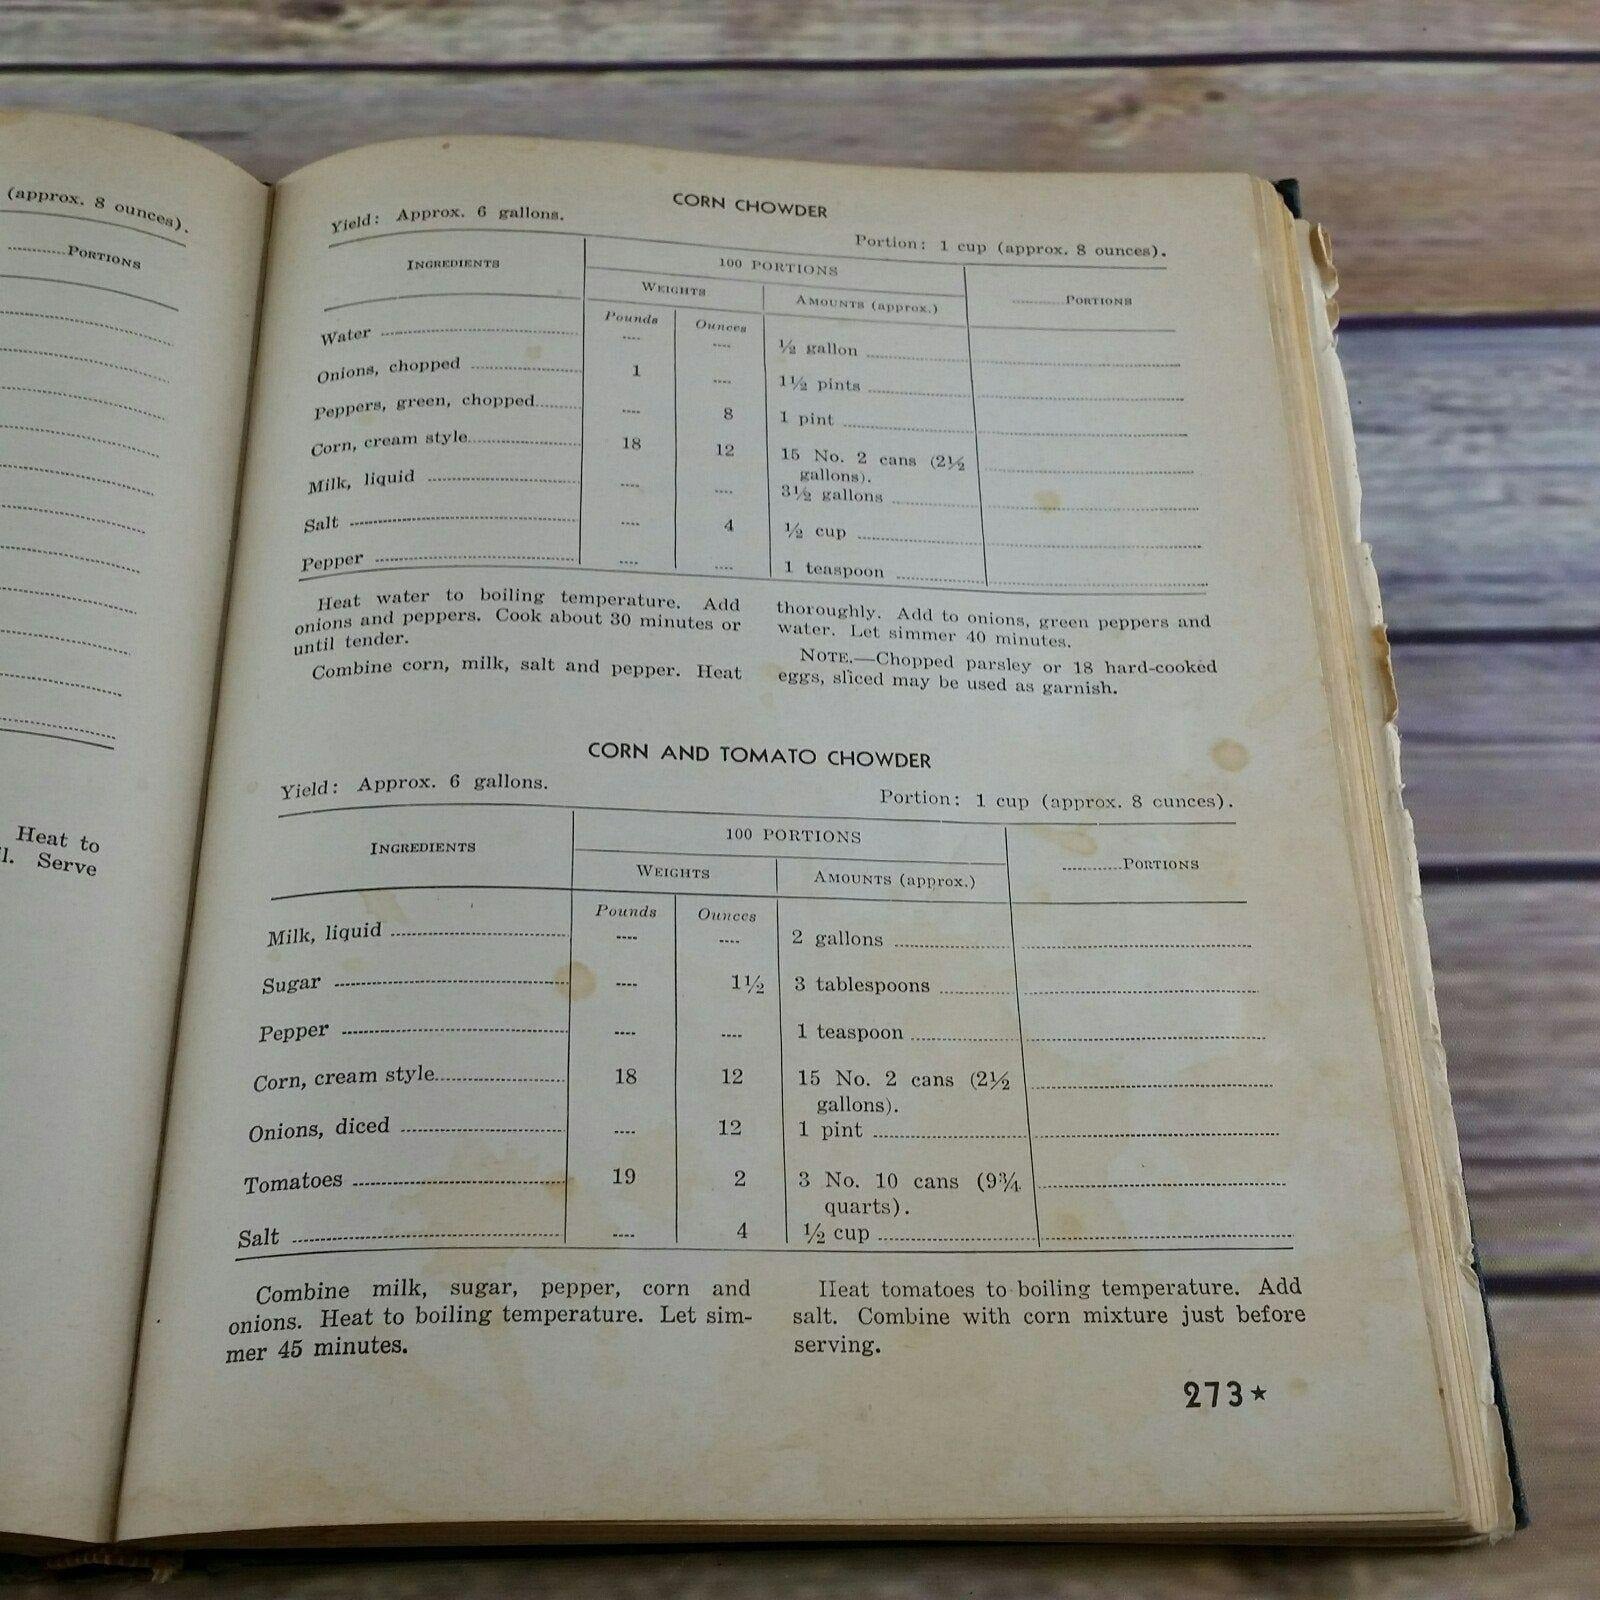 (approx. 8 ounces).
..........PORTIONS
Heat to
l. Serve
CORN CHOWDER
Yield: Approx. 6 gallons.
Portion: 1 cup (approx. 8 ounces).
INGREDIENTS
100 PORTIONS
..........PORTIONS
WEIGHTS
AMOUNTS (approx.)
Pounds
Ounces
Water .... .... ½ gallon
Onions, chopped 1 .... 1½ pints
Peppers, green, chopped .... 8 1 pint
Corn, cream style 18 12 15 No. 2 cans (2½
gallons).
Milk, liquid .... .... 3½ gallons
Salt .... 4 ½ cup
Pepper .... .... 1 teaspoon
Heat water to boiling temperature. Add
onions and peppers. Cook about 30 minutes or
until tender.
Combine corn, milk, salt and pepper. Heat
thoroughly. Add to onions, green peppers and
water. Let simmer 40 minutes.
NOTE.—Chopped parsley or 18 hard-cooked
eggs, sliced may be used as garnish.
CORN AND TOMATO CHOWDER
Yield: Approx. 6 gallons.
Portion: 1 cup (approx. 8 ounces).
INGREDIENTS
100 PORTIONS
..........PORTIONS
WEIGHTS
AMOUNTS (approx.)
Pounds
Ounces
Milk, liquid .... .... 2 gallons
Sugar .... 1½ 3 tablespoons
Pepper .... .... 1 teaspoon
Corn, cream style 18 12 15 No. 2 cans (2½
gallons).
Onions, diced .... 12 1 pint
Tomatoes 19 2 3 No. 10 cans (9¾
quarts).
Salt .... 4 ½ cup
Combine milk, sugar, pepper, corn and
onions. Heat to boiling temperature. Let sim-
mer 45 minutes.
Heat tomatoes to boiling temperature. Add
salt. Combine with corn mixture just before
serving.
273★